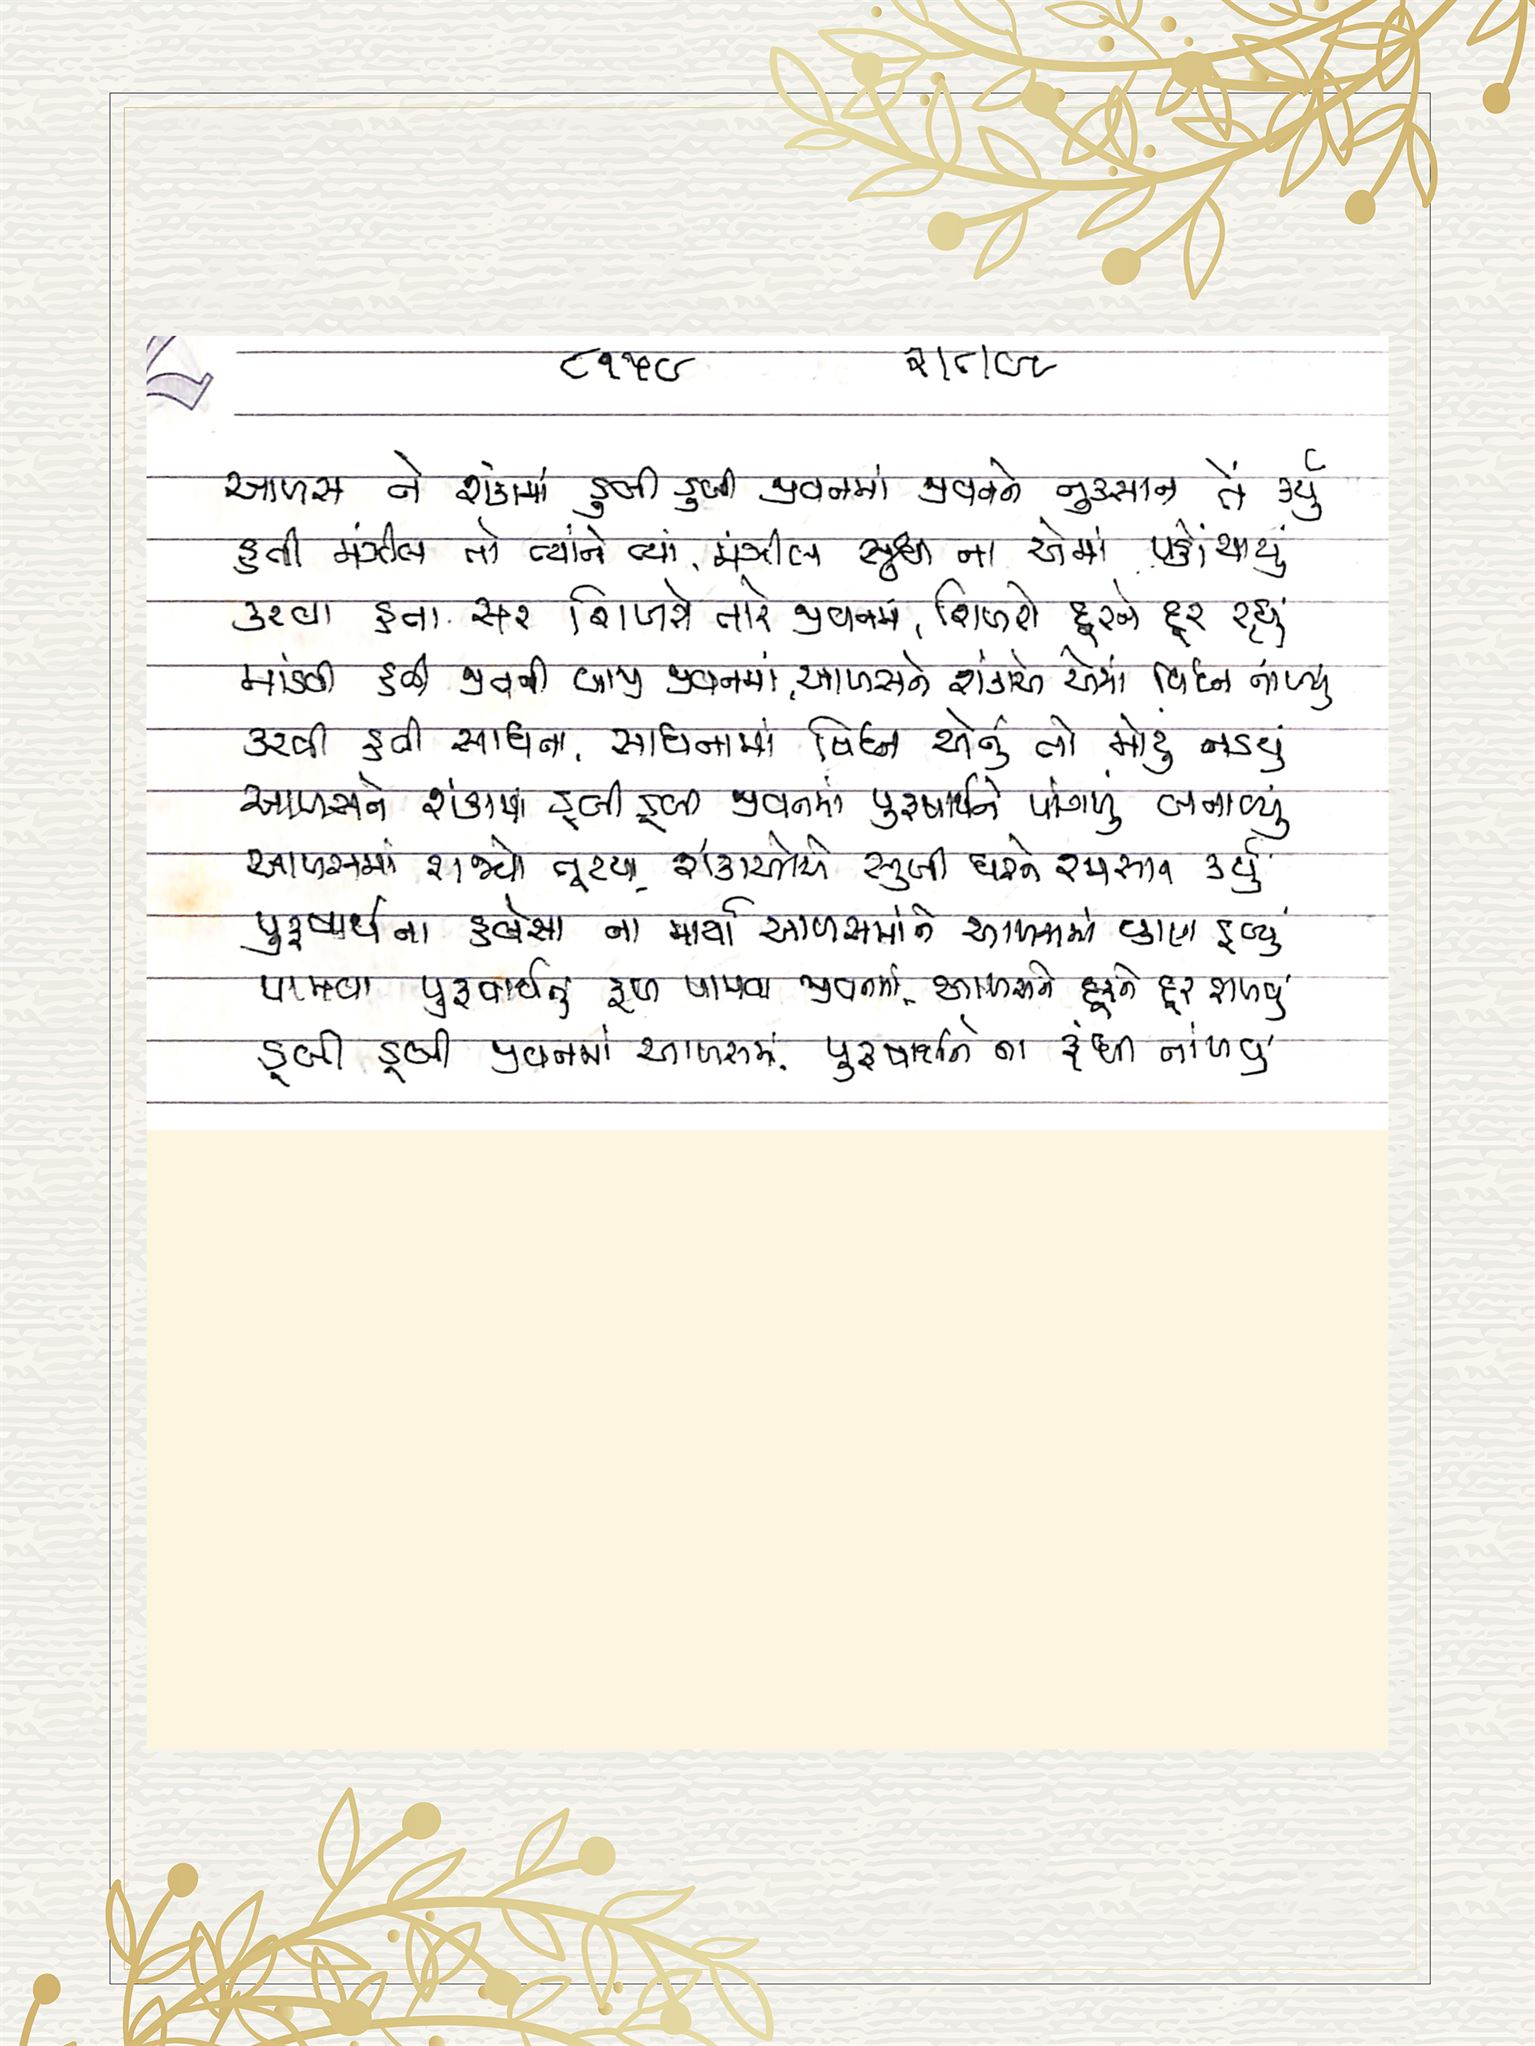 ૮૧૫૮ ૨/૮/૯૯
આળસ ને શંકામાં ડુબી ડુબી જીવનમાં જીવનને નુકસાન તેં કર્યું
હતી મંઝીલ તો ત્યાંને ત્યાં, મંઝીલ સુધી ના એમાં પહોંચાયું
કરવા હતા સર શિખરો તારે જીવનમાં, શિખરો દૂરને દૂર રહ્યું
માંડવી હતી જીવનની બાજી જીવનમાં, આળસને શંકાએ એમાં વિઘ્ન નાંખ્યું
કરવી હતી સાધના, સાધનામાં વિઘ્ન એનું તો મોટું નડયું
આળસને શંકામાં ડૂબી ડૂબી જીવનમાં પુરુષાર્થને પાંગળું બનાવ્યું
આળસમાં રાચ્યો શંકાઓએ સુખી ઘરને કર્યું
પુરુષાર્થના ના માર્યા આળસમાંને આળસમાં
પામવા પુરુષાર્થનું ફળ પામવા જીવનમાં, આળસને દૂરને દૂર રાખવું
ડૂબી ડૂબી જીવનમાં આળસમાં, પુરુષાર્થને ના રૂંધી નાંખવું